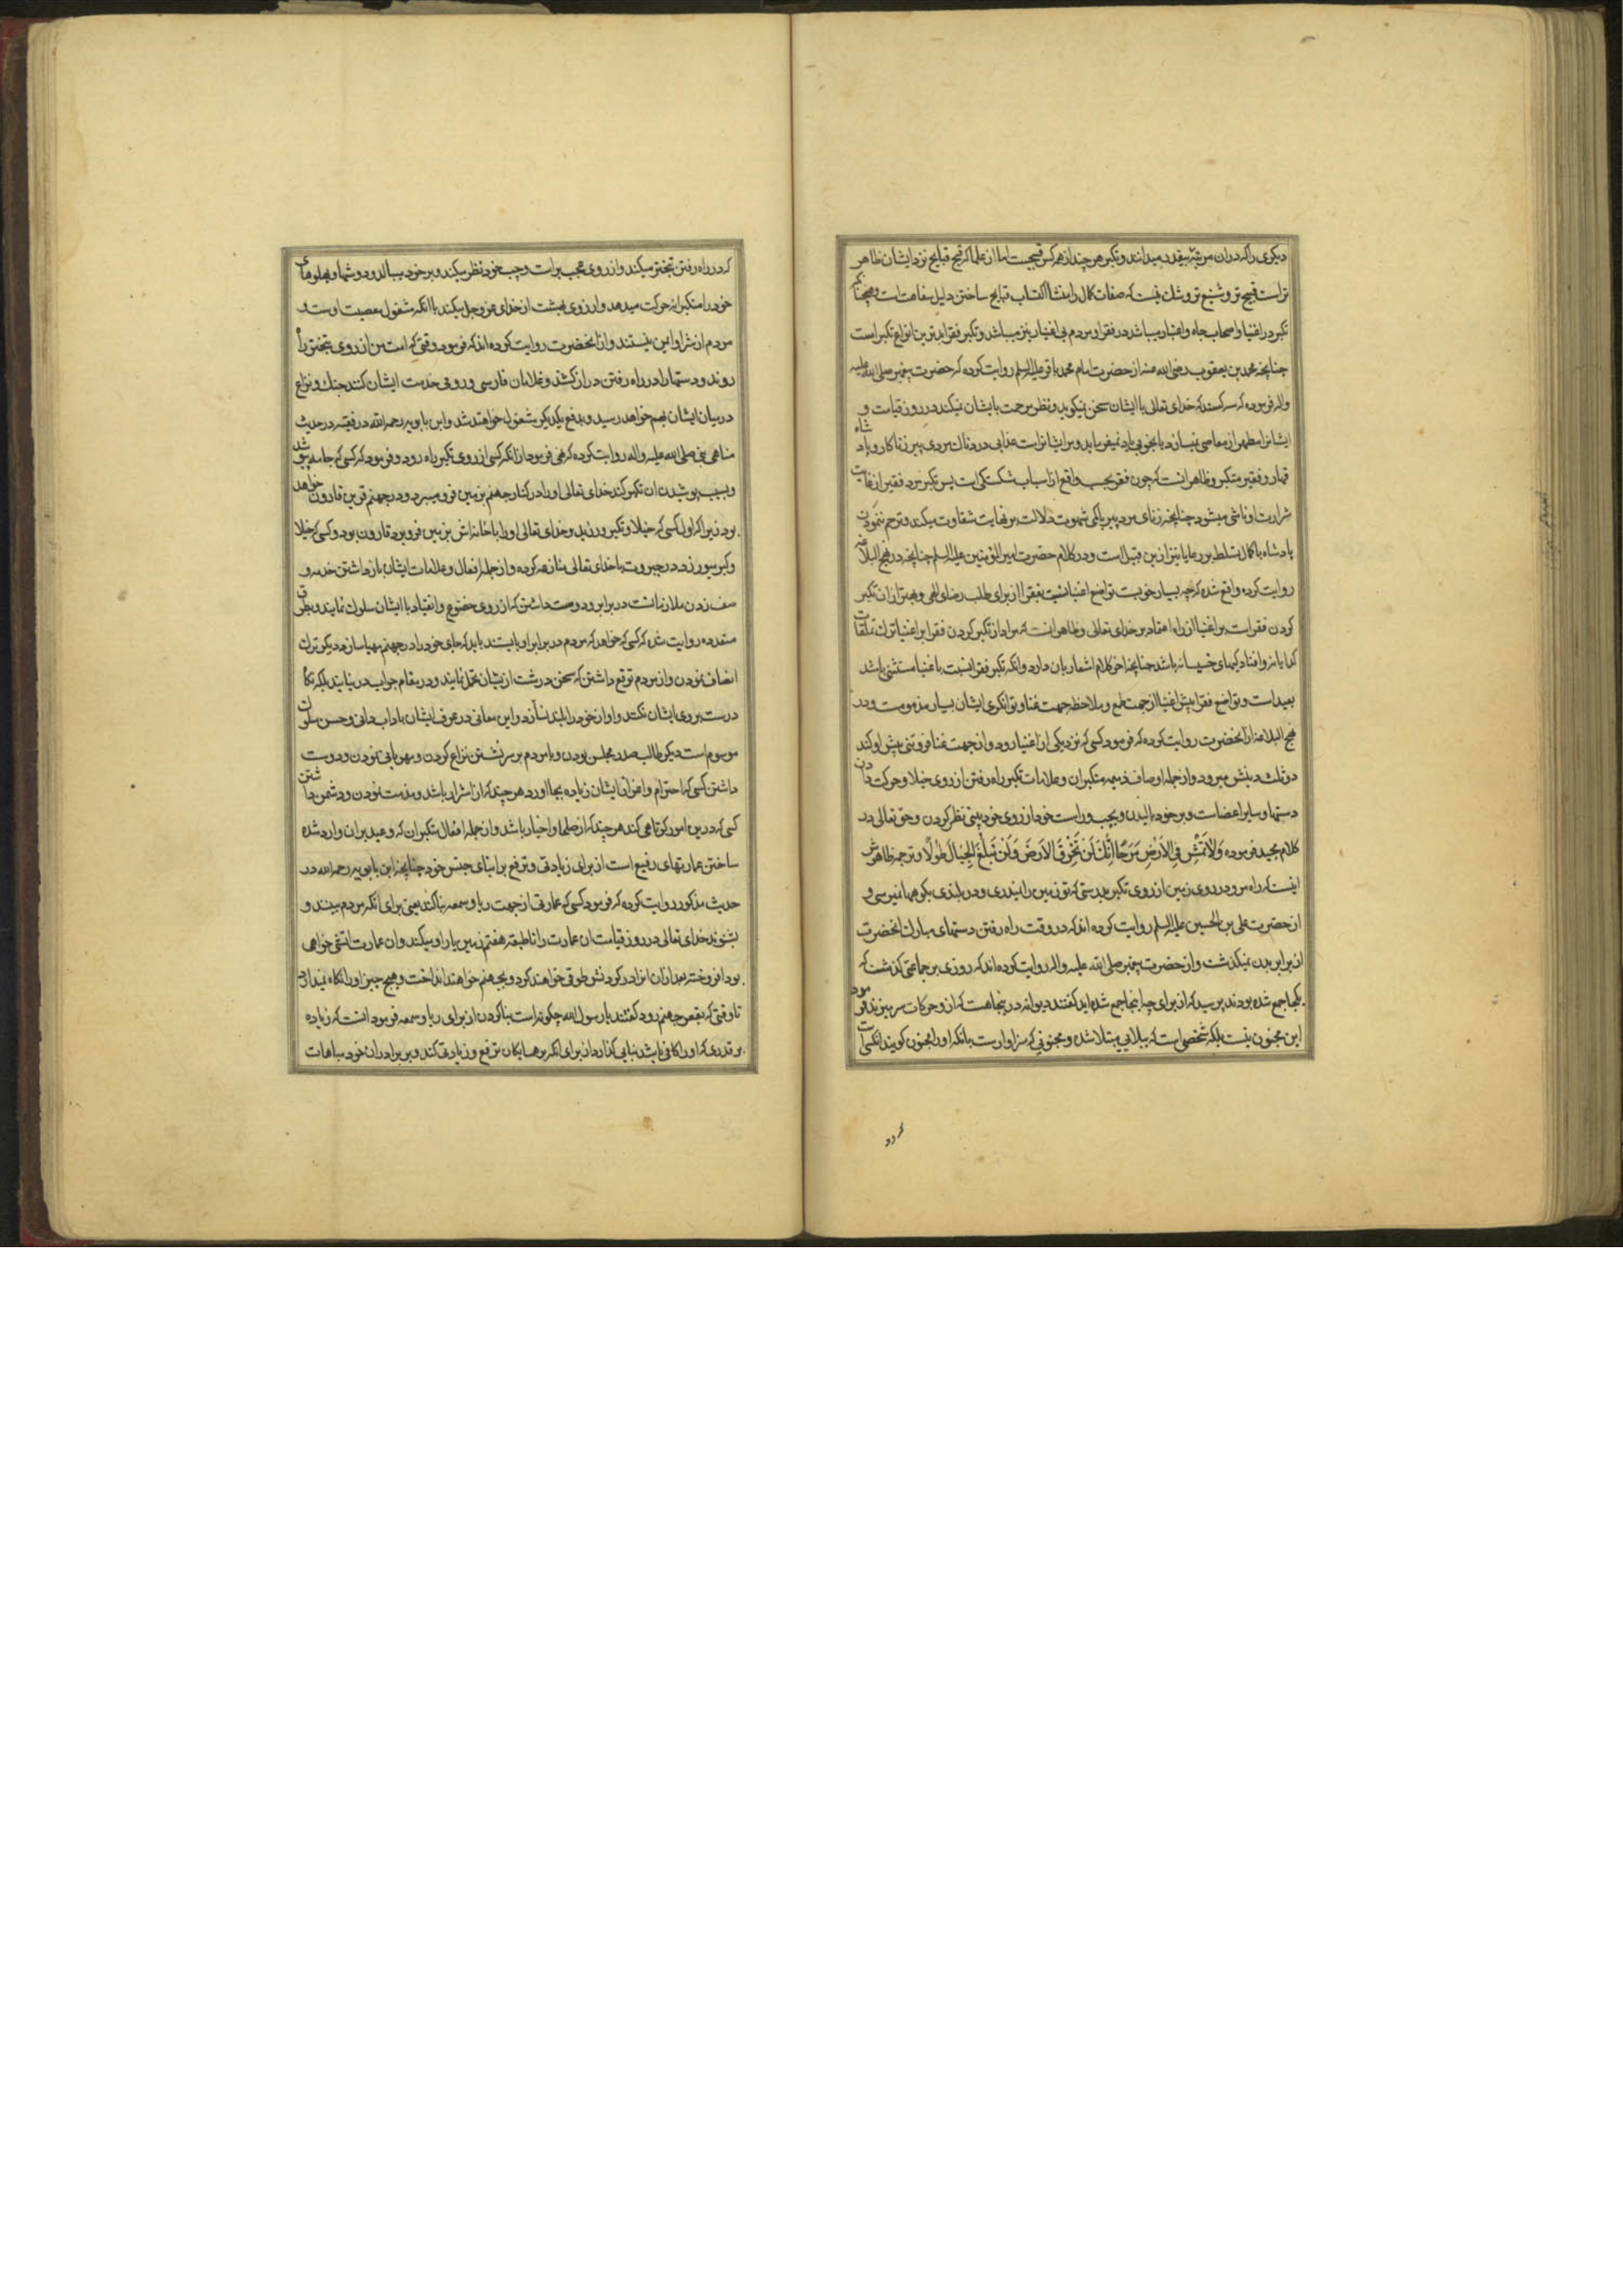 دیکری را که در ان مرتبه بیقدر میدانند و تکبر هر چند از همه کس قبیحست اما از علما که قبح قبایح نزد ایشان ظاهر
تر است قبیح تر و شنیع تر و شک نیست که صفات کمال را منشأ اکتساب قبایح ساختن دلیل سفاهت است و همچنانکه
تکبر در اغنیا و اصحاب جاه و اعتبار میباشد در فقرا و مردم بی اعتبار نیز میباشد و تکبر فقرا بدترین انواع تکبر است
چنانچه محمد بن یعقوب رضی الله عنه از حضرت امام محمد باقر علیه السلم روایت کرده که حضرت پیغمبر صلی الله علیه
واله فرموده که سه کسند که خدای تعالی با ایشان سخن نمیکوید و نظر مرحمت بایشان نمیکند در روز قیامت و
ایشانرا مطهر از معاصی نمیسازد یا بخوبی یاد نمیفرماید و مر ایشانراست عذابی دردناک مردی پیر زناکار و پادشاه
قهار و فقیر متکبر و ظاهر انست که چون فقر بحسب واقع از اسباب شکستکی است پس تکبر مرد فقیر از غایت
شرارت او ناشی میشود چنانچه زنای مرد پیر باکمی شهوت دلالت بر نهایت شقاوت میکند و ترحم ننمودن
پادشاه با کمال تسلط بر رعایا نیز ازین قبیل است و در کلام حضرت امیر المؤمنین علیه السلم چنانچه در نهج البلاغه
روایت کرده واقع شده که چه بسیار خوبست تواضع اغنیا نسبت بفقرا از برای طلب رضای الهی و بهتر از ان تکبر
کردن فقراست بر اغنیا از راه اعتقاد بر خدای تعالی و ظاهر انست که مراد از تکبر کردن فقرا بر اغنیا ترک تملقات
کدایانه و افتادکیهای خسیسانه باشد چنانچه اخر کلام اشعار بان دارد و انکه تکبر فقرا نسبت باغنیا مستثنی باشد
بعید است و تواضع فقرا پیش اغنیا از جهت طمع و ملاحظه جهت غنا و توانکری ایشان بسیار مذمومست و در
نهج البلاغه از انحضرت روایت کرده که فرمود کسی که نزد یکی از اغنیا رود و از جهت غنا فروتنی پیش او کند
دو ثلث دینش میرود و از جمله اوصاف ذمیمه متکبران و علامات تکبر راه رفتن از روی خیلا و حرکت دادن
دستها و سایر اعضاست و بر خود بالیدن و بچپ و راست خود از روی خود بینی نظر کردن و حق تعالی در
کلام مجید فرموده وَلاَ تَمْشِ فِی الاَرْضِ مَرَحًا اِنَّكَ لَن تَخْرِقَ الاَرضَ وَلَن تَبلُغَ الجِبَالَ طُولًا و ترجمه ظاهرش
اینست که راه مرو در روی زمین از روی تکبر بدرستی که تو زمین را نیدری و در بلندی بکوهها نمیرسی و
از حضرت علی بن الحسین علیه السلم روایت کرده اند که در وقت راه رفتن دستهای مبارک انحضرت
از برابر بدن نمیکذشت و از حضرت پیغمبر صلی الله علیه واله روایت کرده اند که روزی بر جماعتی کذشت که
یکجا جمع شده بودند پرسید که از برای چه اینجا جمع شده اید کفتند دیوانه در اینجا هست که ازو حرکات سر میزند فرمود
این مجنون نیست بلکه شخصی است که ببلایی مبتلا شده و مجنونی که سزاوارست بانکه او را مجنون کویند انکسی است
که در راه رفتن تبختر میکند و از روی عجب براست و چپ خود نظر میکند و بر خود میبالد و دوشها و پهلوهای
خود را متکبرانه حرکت میدهد و ارزوی بهشت از خدای عز وجل میکند با انکه مشغول معصیت اوست و
مردم از شر او ایمن نیستند و از انحضرت روایت کرده اند که فرمود وقتی که امت من از روی تبختر راه
روند و دستها را در راه رفتن دراز کشند و غلامان فارسی و رومی خدمت ایشان کنند جنک و نزاع
در میان ایشان بهم خواهد رسید و بدفع یکدیکر مشغول خواهند شد و ابن بابویه رحمه الله در فقیه در حدیث
مناهی نبی صلی الله علیه واله روایت کرده که نهی فرمود از انکه کسی از روی تکبر راه رود و فرمود که کسی که جامه پوشد
و بسبب پوشیدن ان تکبر کند خدای تعالی او را در کنار جهنم بزمین فرو میبرد و در جهنم قرین قارون خواهد
بود زیرا که اول کسی که خیلا و تکبر ورزید و خدای تعالی او را با خانه اش بزمین فرو برد قارون بود و کسی که خیلا
و کبر میورزد در جبروت با خدای تعالی منازعه کرده و از جمله افعال و علامات ایشان باز داشتن خدم و
صف زدن ملازمانست در برابر و دوست داشتن که از روی خضوع و انقیاد با ایشان سلوک نمایند و بطرق
متعدده روایت شده که کسی که خواهد که مردم در برابر او بایستند باید که جای خود را در جهنم مهیا سازد دیکر ترک
انصاف نمودن و از مردم توقع داشتن که سخن درشت از ایشان تحمل نمایند و در مقام جواب در نیایند بلکه نکاه
درست بروی ایشان نکنند و اواز خود را بلند نسازند و این معانی در عرف ایشان باداب دانی و حسن سلوک
موسوم است دیکر طالب صدر مجلس بودن و با مردم بر سر نشستن نزاع کردن و مهربانی نمودن و دوست
داشتن کسی که احترام و اعزاز ایشان زیاده بجا اورد هر چند که از اشرار باشد و مذمت نمودن و دشمن داشتن
کسی که درین امور کوتاهی کند هر چند که از صلحا و اخیار باشد و از جمله افعال متکبران که وعید بر ان وارد شده
ساختن عمارتهای رفیع است از برای زیادتی و ترفع بر ابنای جنس خود چنانچه ابن بابویه رحمه الله در
حدیث مذکور روایت کرده که فرمود کسی که عمارتی از جهت ریا و سمعه بنا کند یعنی برای انکه مردم ببینند و
بشنوند خدای تعالی در روز قیامت ان عمارت را تا طبقه هفتم زمین بار او میکند و ان عمارت اتشی خواهی
بود افروخته بعد از ان انرا در کردنش طوقی خواهند کرد و بجهنم خواهند انداخت و هیچ چیز او را نکاه نمیدارد
تا وقتی که بقعر جهنم رود کفتند یا رسول الله چکونه است بنا کردن از برای ریا و سمعه فرمود انست که زیاده
بر قدری که او را کافی باشد بنایی کذارد از برای انکه بر همسایکان ترفع و زیادتی کند و بر برادران خود مباهات